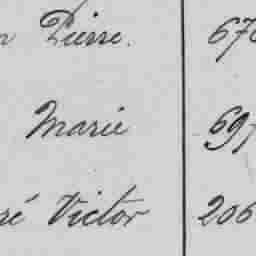 Pierre. 670
Marie 697
ré Victor 206